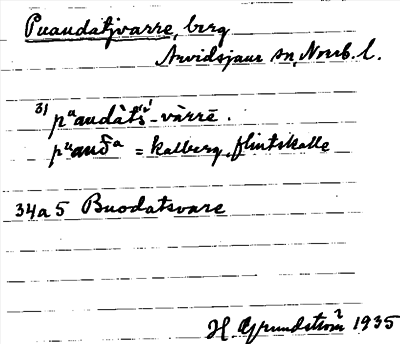 Puaudatjvarre, berg
Arvidsjaur sn, Norrb. l.
31 pᵘaudàts̀-vàrrē.
pᵘauδᵃ = kalberg, flintskalle
34a5 Buodatsvare
H. Grundström 1935